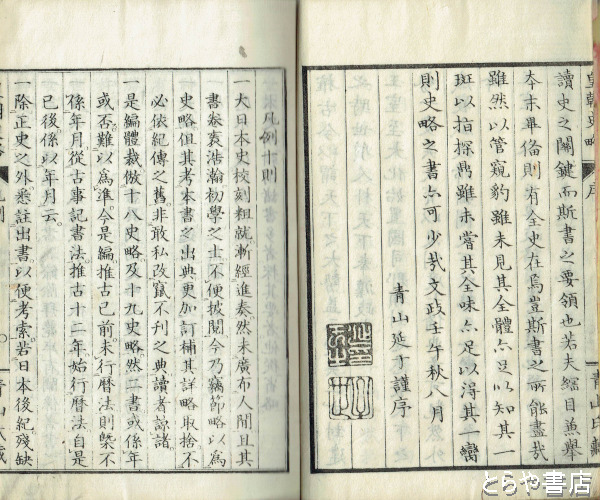 皇朝史略
序
讀史之關鍵而斯書之要領也若夫綱目兼舉
本末畢備則有全史在焉豈斯書之所能盡哉
雖然以管窺豹雖未見其全體亦足以知其一
斑以指探鼎雖未嘗其全味亦足以得其一臠
則史略之書亦可少哉文政壬午秋八月
青山延于謹序
青山氏藏
凡例十則
一大日本史校刻粗就漸經進奏然未廣布人間且其
書卷袠浩瀚初學之士不便披閱今乃竊節略以爲
史略但其考本書之出典更加訂補其詳略取捨不
必依紀傳之舊非敢私改竄不刊之典讀者諒諸
一是編體裁倣十八史略及十九史略然二書或係年
或否難以爲準今是編推古已前未行曆法則槩不
係年月從古事記書法推古十二年始行曆法自是
已後係以年月云
一除正史之外悉註出書以便考索若日本後紀殘缺
凡例
青山氏藏
とらや書店